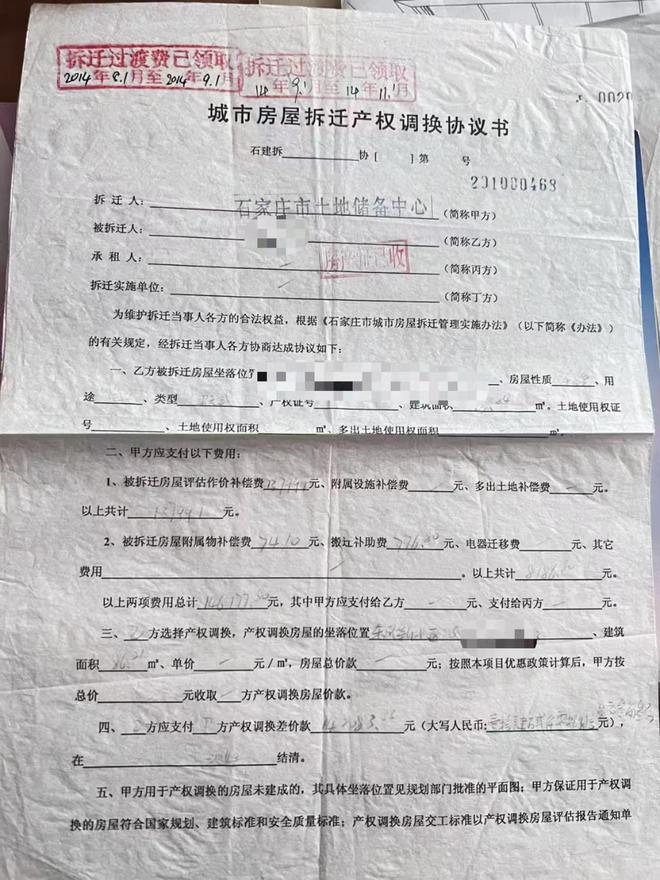 拆迁过渡费已领取
2014年8.1月至2014年9.1月
拆迁过渡费已领取
14年9.1月至14年11.1月
城市房屋拆迁产权调换协议书
石建拆 协[ ]第 号
201000468
拆迁人: 石家庄市土地储备中心 (简称甲方)
被拆迁人: (简称乙方)
承租人: (简称丙方)
拆迁实施单位: (简称丁方)
为维护拆迁当事人各方的合法权益,根据《石家庄市城市房屋拆迁管理实施办法》(以下简称《办法》)
的有关规定,经拆迁当事人各方协商达成协议如下:
一、乙方被拆迁房屋坐落位置 、房屋性质 、用
途 、类型 、产权证号 、建筑面积 ㎡。土地使用权证
号 、土地使用权面积 ㎡、多出土地使用权面积
二、甲方应支付以下费用:
1、被拆迁房屋评估作价补偿费 137991 元、附属设施补偿费 元、多出土地补偿费 元。
以上共计 137991 元。
2、被拆迁房屋附属物补偿费 7410 元、搬迁补助费 元、电器迁移费 元、其它
费用 。以上共计 元。
以上两项费用总计 元,其中甲方应支付给乙方 元、支付给丙方 元。
三、乙方选择产权调换,产权调换房屋的坐落位置 、建筑
面积 ㎡、单价 元/㎡,房屋总价款 元;按照本项目优惠政策计算后,甲方按
总价 元收取 方产权调换房屋价款。
四、 方应支付 方产权调换差价款 元(大写人民币: 元),
在 结清。
五、甲方用于产权调换的房屋未建成的,其具体坐落位置见规划部门批准的平面图;甲方保证用于产权调
换的房屋符合国家规划、建筑标准和安全质量标准;产权调换房屋交工标准以产权调换房屋评估报告通知单